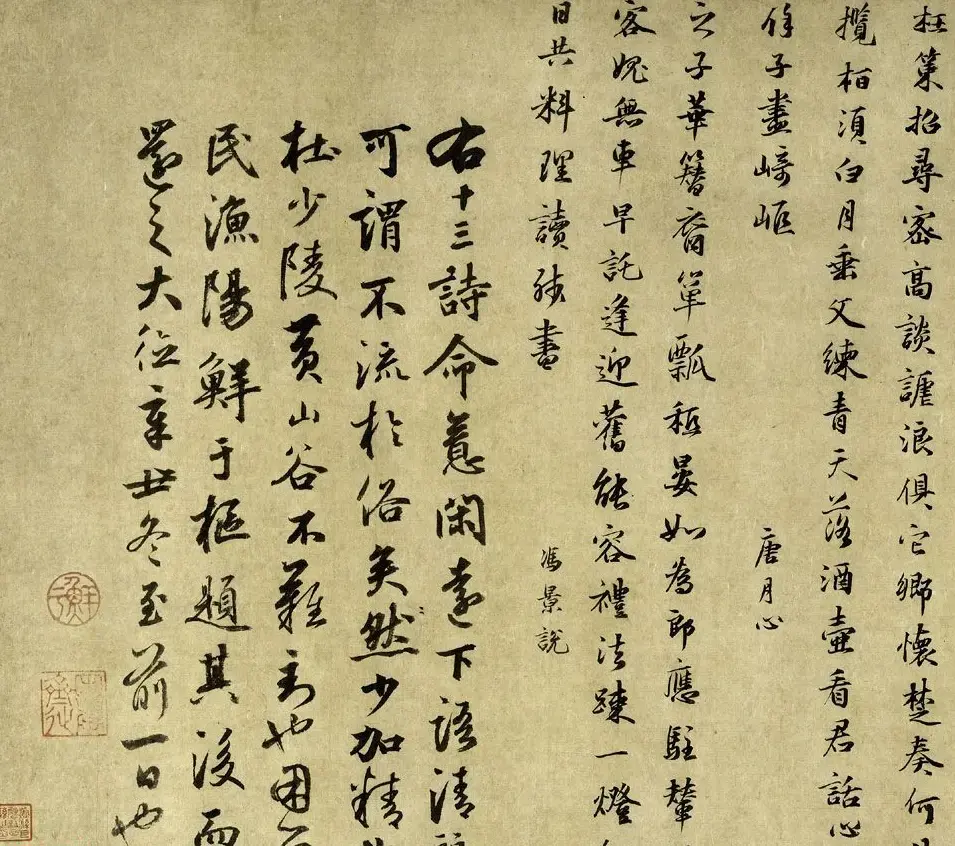 枉策招尋密高談謔浪俱它鄉懷楚奏何
攬柏須白月垂父練青天落酒壺看君話心
餘子盡崎嶇
唐月心
之子華簪裔簞瓢秪晏如為郎應駐輦
客媿無車早託逢迎舊能容禮法踈一燈
日共料理讀殘書
馮景說
右十三詩命意閑遠下語清
可謂不流於俗矣然少加精
杜少陵黃山谷不難到也困
民漁陽鮮于樞題其後而
還之大德辛丑冬至前一日也